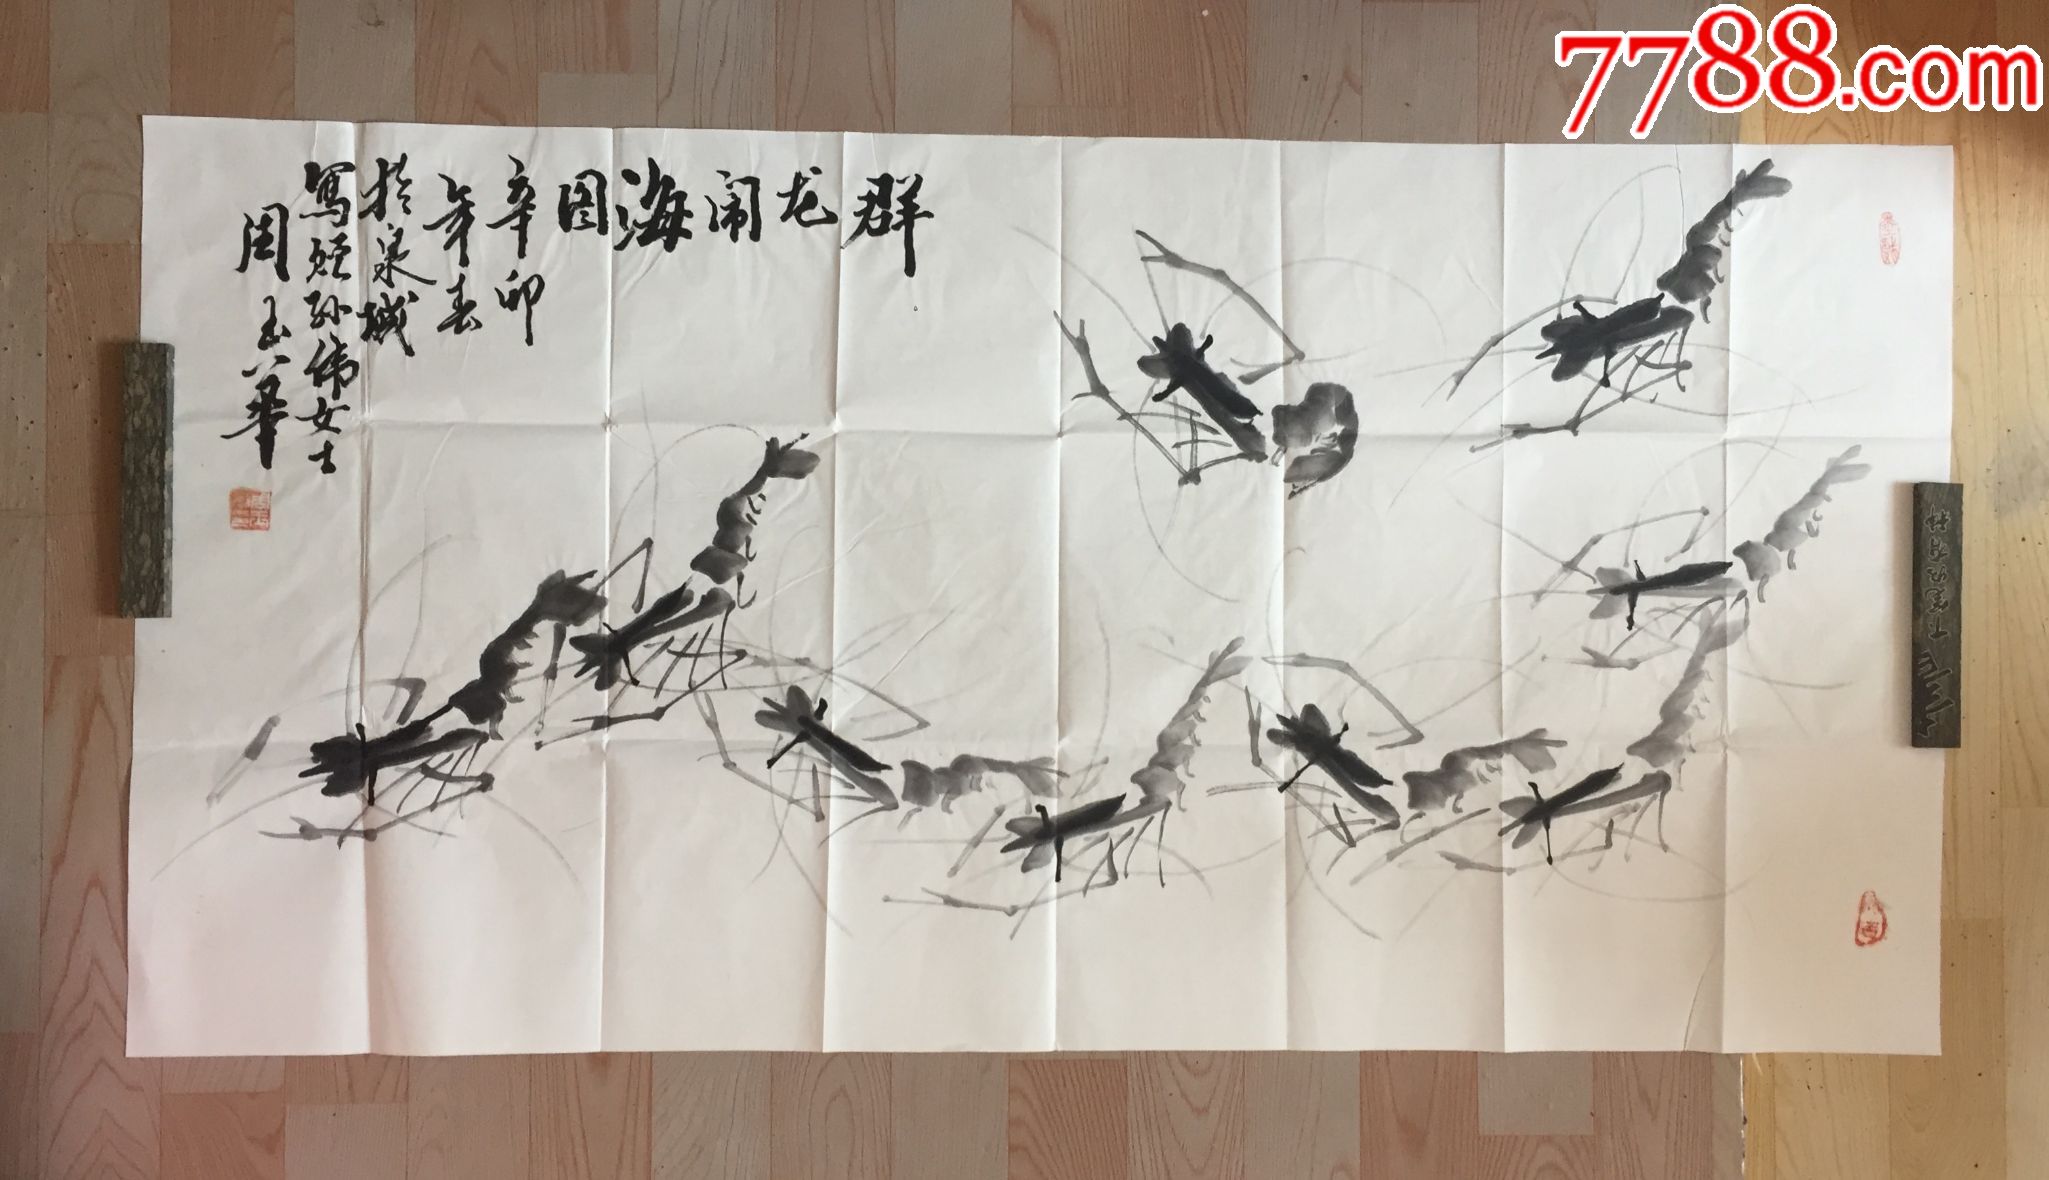 7788.com
群龙闹海图
辛卯
年春
於泉城
寫赠孙伟女士
周玉華